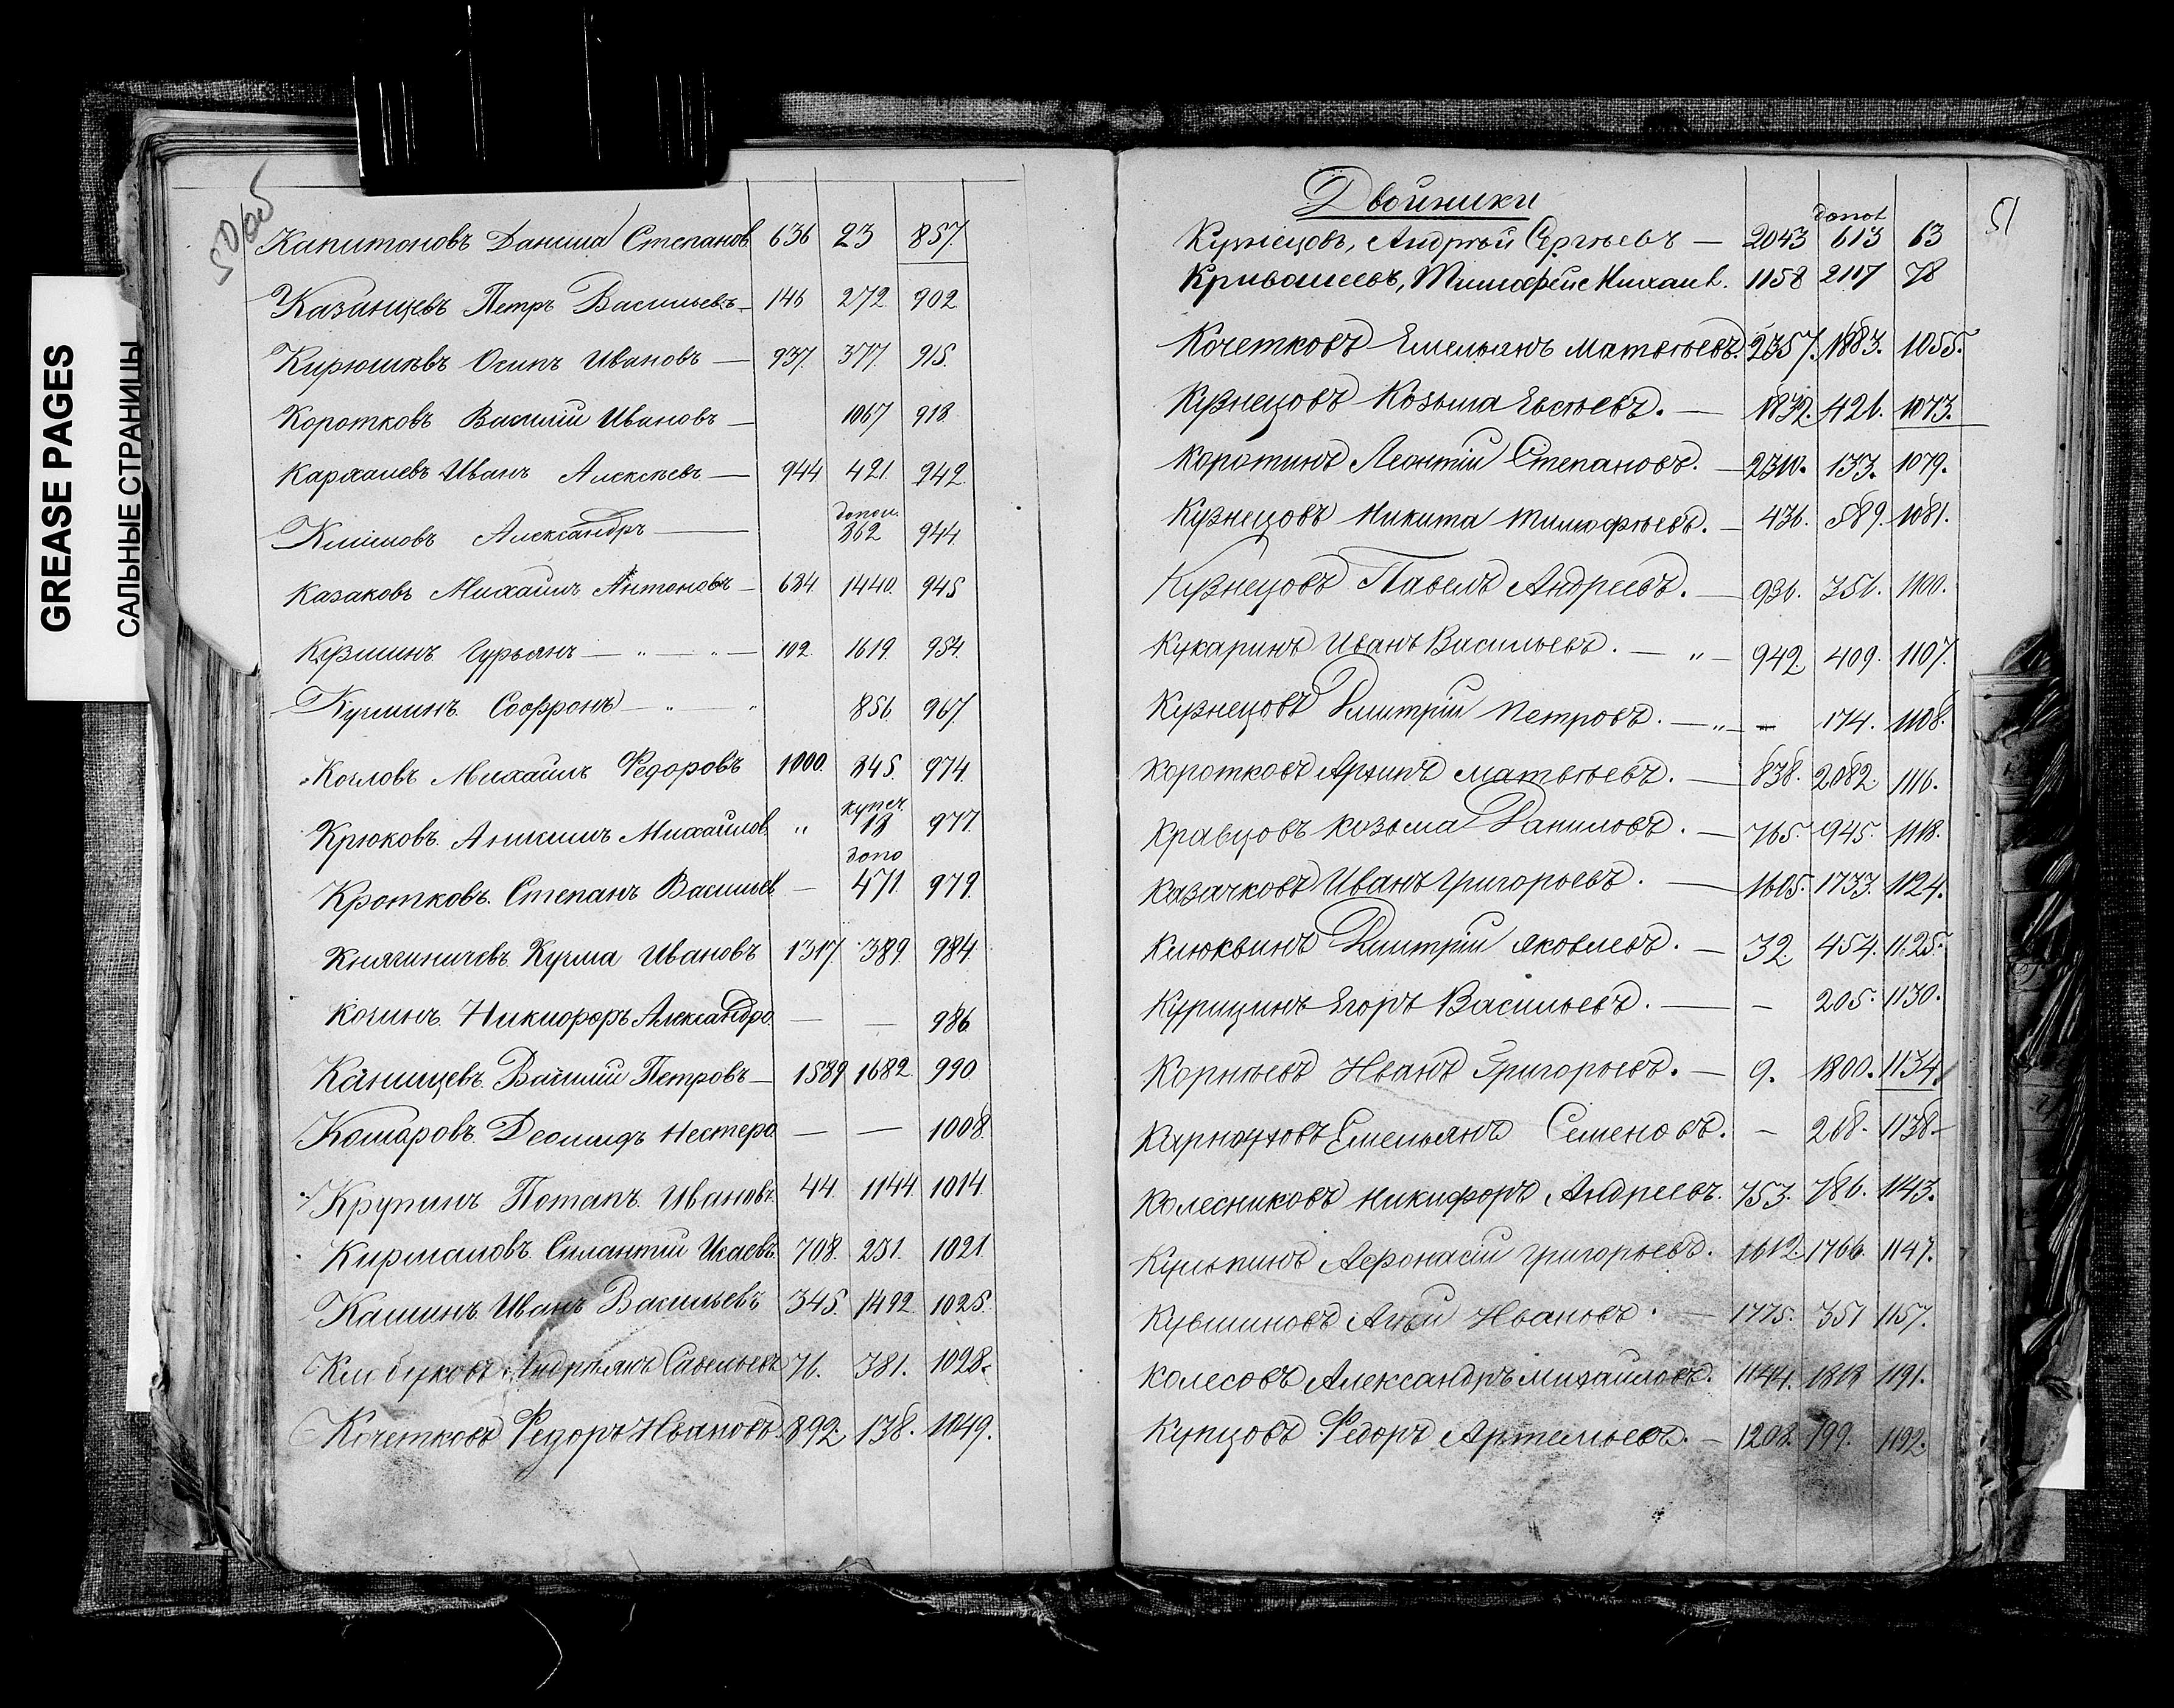 GREASE PAGES
САЛЬНЫЕ СТРАНИЦЫ
50об
Капитоновъ Данила Степанов 636 23 857.
Казанцевъ Петръ Васильевъ 146 272 902
Кирюшкѣвъ Осипъ Ивановъ — 937. 377. 915.
Коротковъ Василiй Ивановъ — 1067 918.
Иванъ Алексѣевъ — 944 421. 942.
Климовъ Александръ — допол. 362 944.
Казаковъ Михаилъ Антоновъ — 634. 1440. 945
Кузминъ Гурьянъ — " — " — 102. 1619. 954.
Кузминъ. Софронъ — " " 856 967.
Козловъ Михаилъ Федоровъ 1000. 845. 974.
Крюковъ. Аникинъ Михайлов " купеч. 13 977.
Кротковъ. Степанъ Васильев — допо 471. 979.
Княгиничевъ. Кузма Ивановъ 1317. 389. 984.
Козинъ. Никифоръ Александро. — — 986
Канищевъ. Василiй Петровъ — 1589 1682. 990.
Комаровъ. Деомидъ Нестеро. — — 1008.
Крупинъ Потапъ. Ивановъ. 44. 1144. 1014.
Силантiй Исаевъ. 708. 251. 1021.
Кашинъ. Иванъ Васильевъ 345. 1492. 1025.
Андрѣянъ Савельевъ 76. 381. 1028.
Кочетковъ Федоръ Ивановъ. 892. 138. 1049.
51
Двойники
Кузнецовъ, Андрѣй Сергѣевъ — 2043 допол 613 63
Кривошеевъ, Тимофей Михаил. 1158 2117 78
Кочетковъ Емельянъ Матвѣевъ. 2357. 1883. 1055.
Кузнецовъ Козьма Евсѣевъ. — 1832. 421. 1073.
Коротинъ Леонтiй Степановъ. — 2310. 133. 1079.
Кузнецовъ Никита Тимофѣевъ. — 436. 589. 1081.
Кузнецовъ Павелъ Андреевъ. — 936. 356. 1100.
Кукаринъ Иванъ Васильевъ. — " — 942. 409. 1107.
Кузнецовъ Дмитрiй Петровъ. — " — — 174. 1108.
Коротковъ Архипъ Матвѣевъ. — 838. 2082. 1116.
Кравцовъ Козьма Даниловъ. — 765. 945. 1118.
Казачковъ Иванъ Григорьевъ. — 1605. 1733. 1124.
Клюквинъ Дмитрiй Яковлевъ. — 32. 454. 1125.
Курицинъ Егоръ Васильевъ. — — 205. 1130.
Корнѣевъ Иванъ Григорьевъ. — 9. 1800. 1134.
Карнауховъ Емельянъ Семеновъ. — 268. 1138.
Колесниковъ Никифоръ Андреевъ. 753. 786. 1143.
Кулькинъ Афонасiй Григорьевъ. 1612. 1766. 1147.
Кувшиновъ Ивановъ. — 1775. 351 1157.
Колесовъ Александръ Михайловъ. 1144. 1819 1191.
Купцовъ Федоръ Артемьевъ. — 1208. 799. 1192.